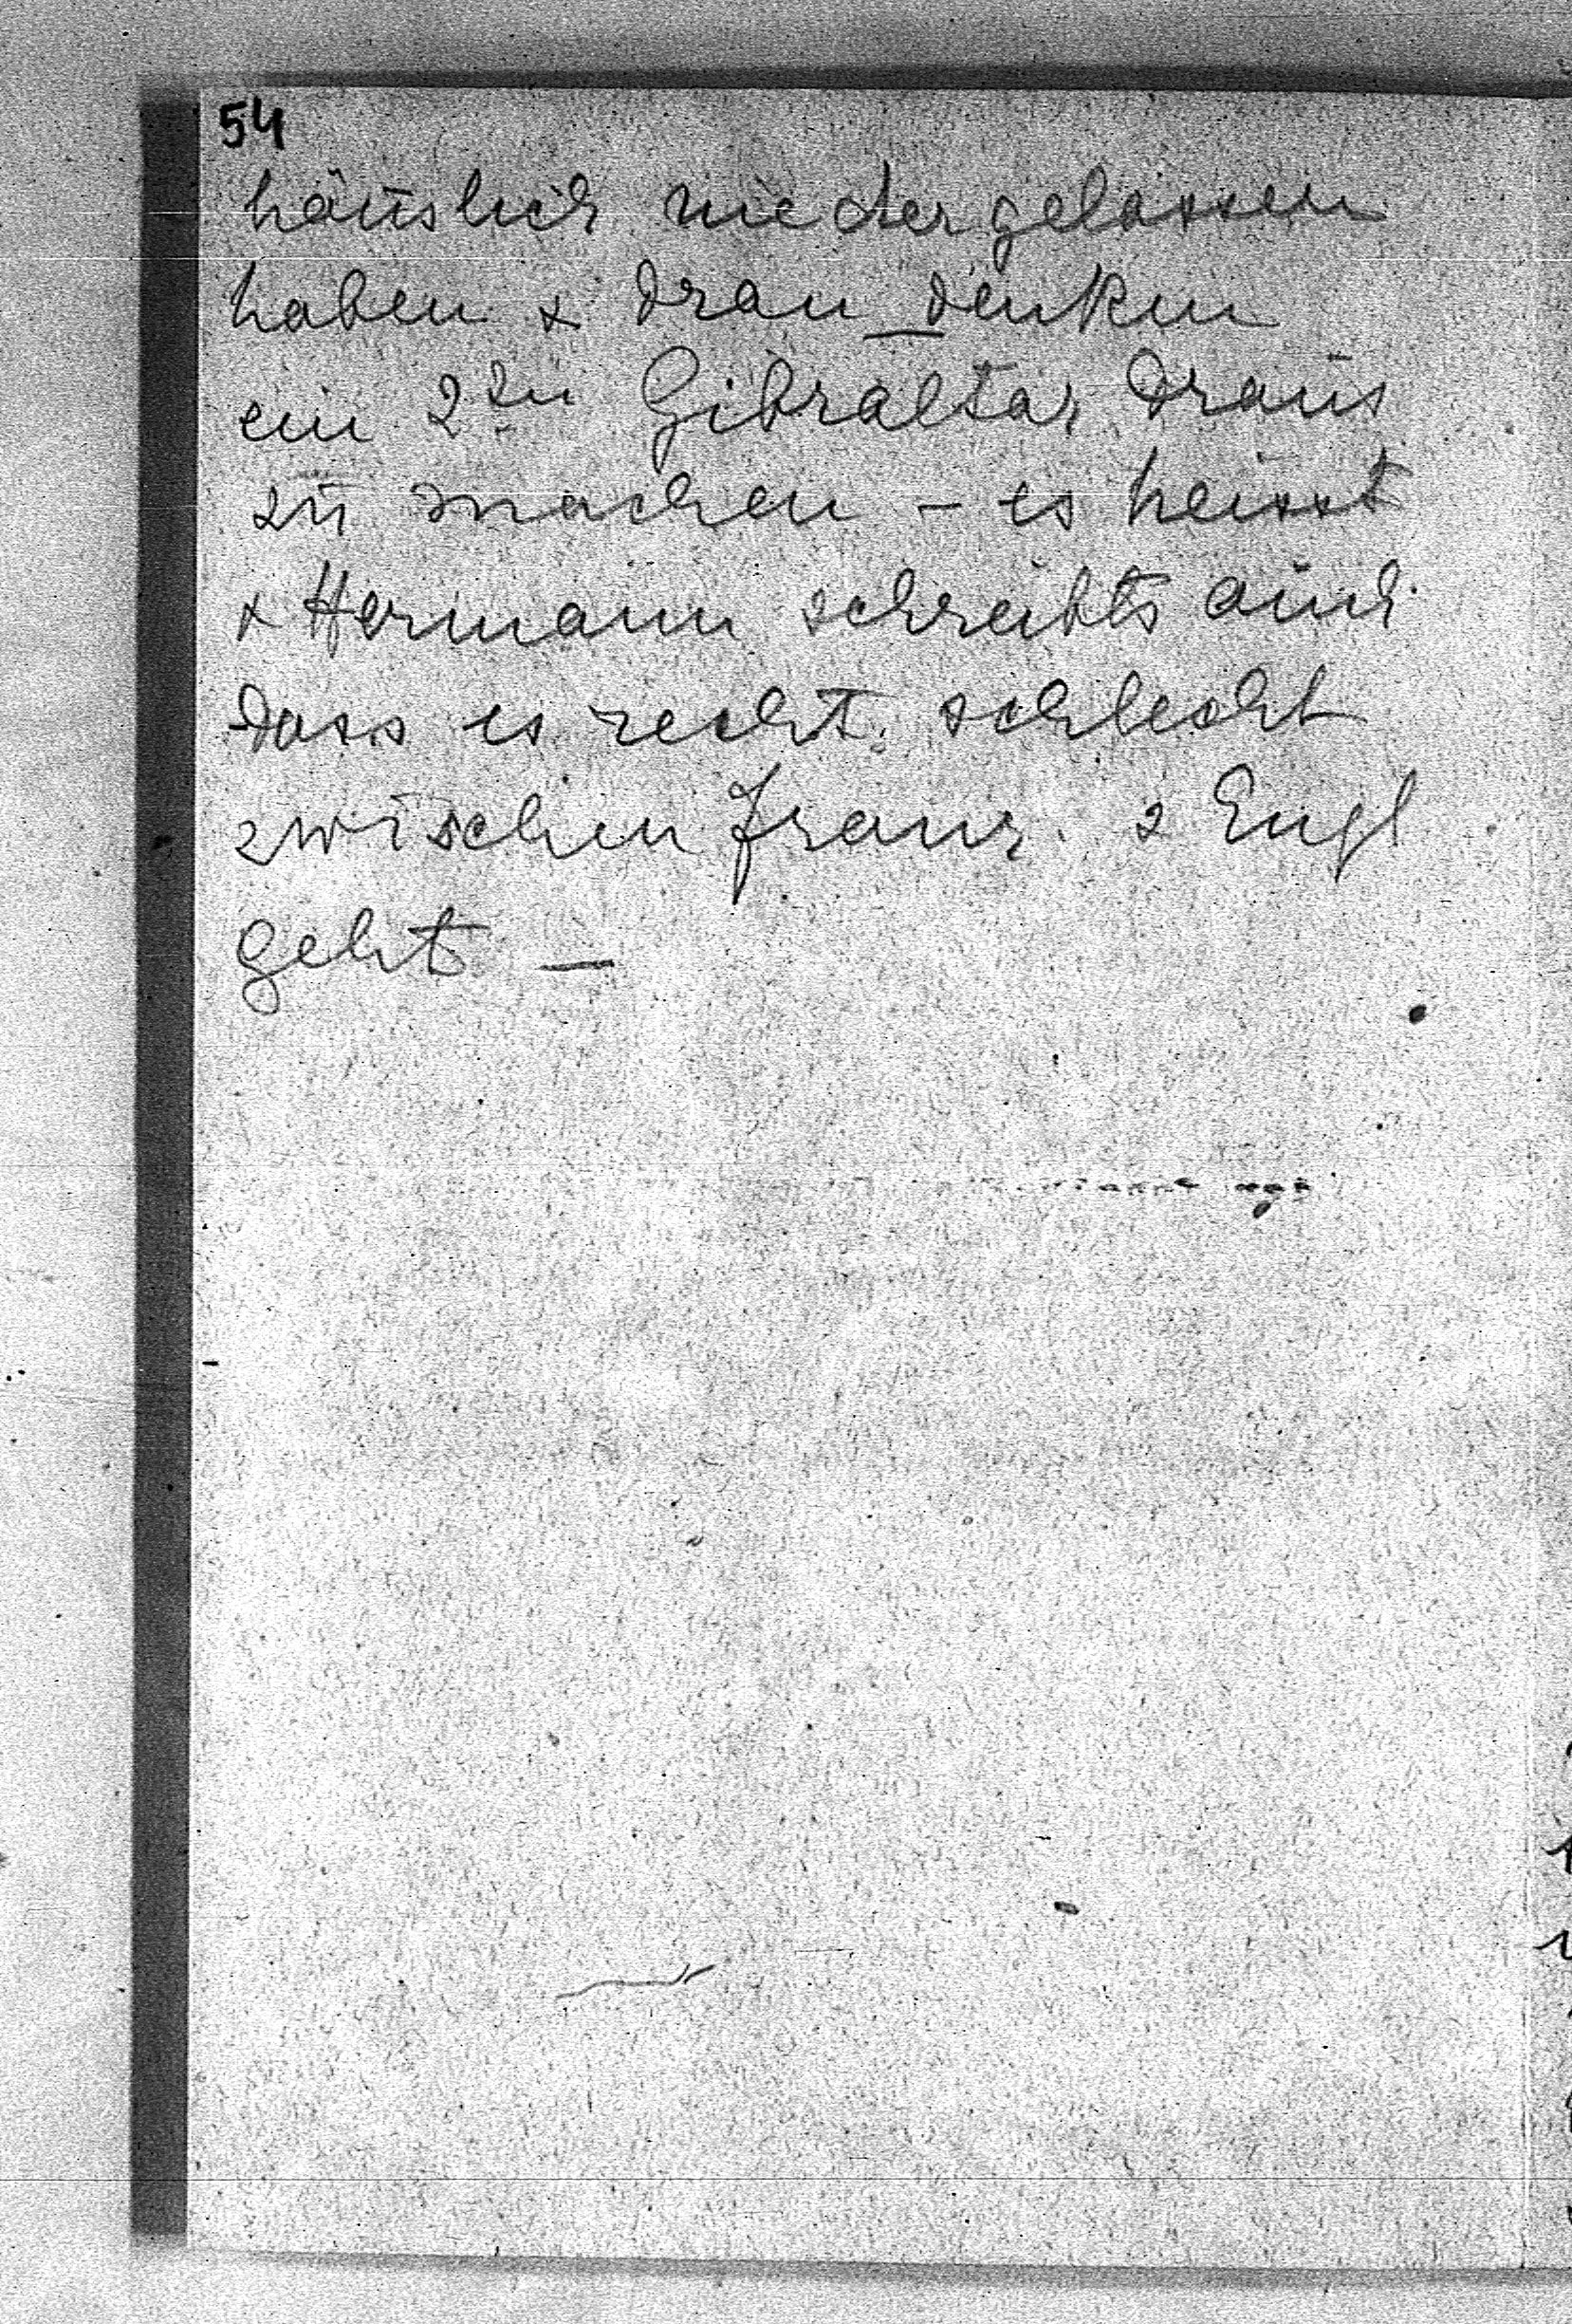 54
häuslich niedergelassen
haben & dran denken
ein 2tes Gibraltar draus
zu machen - es heisst
& Hermann schreibts auch
dass es recht schlecht
zwischen Franz. & Engl
geht —